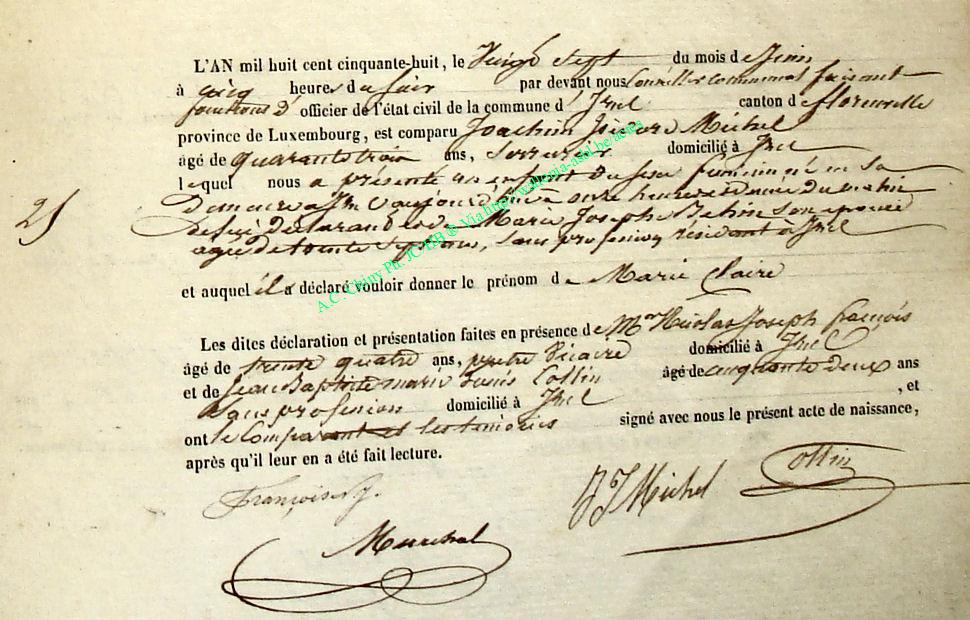 L'AN mil huit cent cinquante-huit, le Vingt Sept du mois de Juin
à cinq heures du soir par devant nous Conseiller Communal faisant
fonctions d' officier de l'état civil de la commune d' Izel canton de florenville
province de Luxembourg, est comparu Joachim Michel
âgé de quarante trois ans, Serrurier domicilié à Izel
lequel nous a présenté un enfant du sexe féminin né en sa
Demeure à Izel aujourd'hui à onze heures du matin
de lui déclarant et de Marie Joseph Belin son épouse
agée de trente Sept ans, Sans profession, résidant à Izel
25
et auquel il a déclaré vouloir donner le prénom de Marie Claire
Les dites déclaration et présentation faites en présence de Mr Nicolas Joseph françois
âgé de trente quatre ans, prêtre Vicaire domicilié à Izel
et de Jean Baptiste marie Denis Collin âgé de cinquante deux ans
Sans profession domicilié à Izel , et
ont le Comparant et les témoins signé avec nous le présent acte de naissance,
après qu'il leur en a été fait lecture.
François N. J.
J J Michel
Collin
Marechal
A.C. Chiny Ph JC/BB ® Via http://wallonia-asbl.be/actes